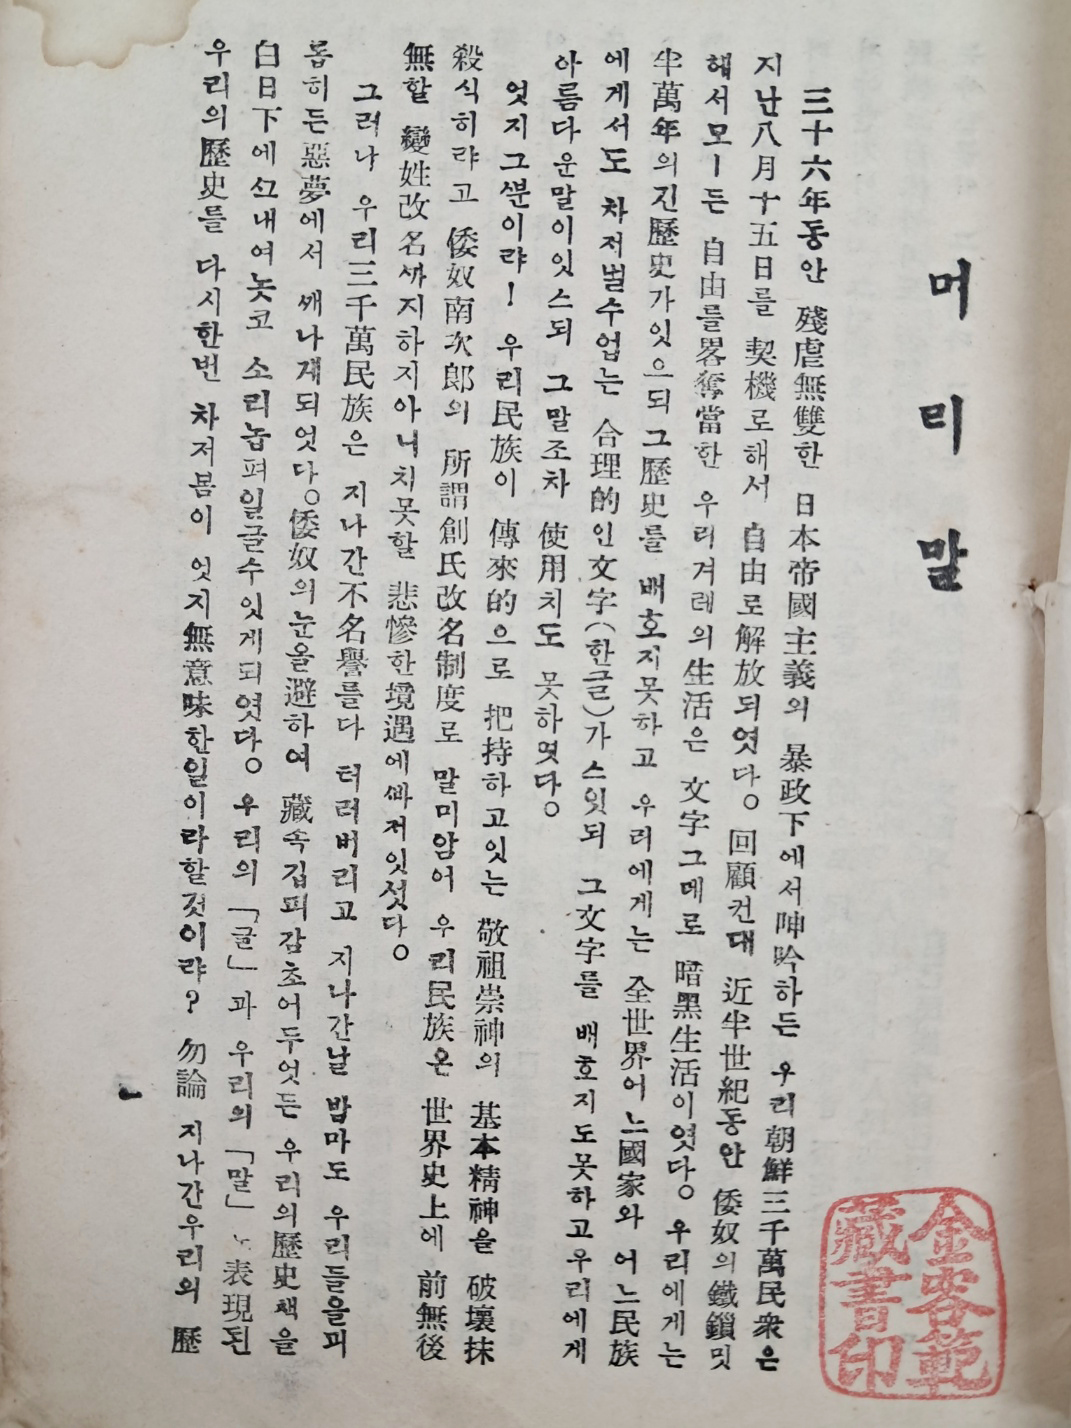 머리말
三十六年동안 殘虐無雙한 日本帝國主義의 暴政下에서呻吟하든 우리朝鮮三千萬民衆은
지난八月十五日를 契機로해서 自由로解放되엿다。回顧컨대 近半世紀동안 倭奴의鐵鎖밋
헤서모ㅣ든 自由를畧奪當한 우리겨레의生活은 文字그대로 暗黑生活이엿다。우리에게는
半萬年의긴歷史가잇으되그歷史를 배호지못하고 우리에게는 全世界어느國家와 어느民族
에게서도 차저벌수업는 合理的인文字(한글)가스잇되 그文字를 배호지도못하고우리에게
아름다운말이잇스되 그말조차 使用치도 못하엿다。
엇지그뿐이랴! 우리民族이 傳來的으로 把持하고잇는 敬祖崇神의 基本精神을 破壞抹
殺식히랴고 倭奴南次郎의 所謂創氏改名制度로 말미암어 우리民族은 世界史上에 前無後
無할 變姓改名까지하지아니치못할 悲慘한境遇에빠저잇섯다。
그러나 우리三千萬民族은 지나간不名譽를다 터러버리고 지나간날 밤마도 우리들을괴
롭히든惡夢에서 깨나게되엇다。倭奴의눈을避하여 藏속깁피감초어두엇든 우리의歷史책을
白日下에쓰내여놋코 소리놉펴일글수잇게되엿다。우리의「글」과 우리의「말」노表現된
우리의歷史를 다시한번 차저봄이 엇지無意味한일이라할것이랴? 勿論 지나간우리의 歷
金容範
藏書印